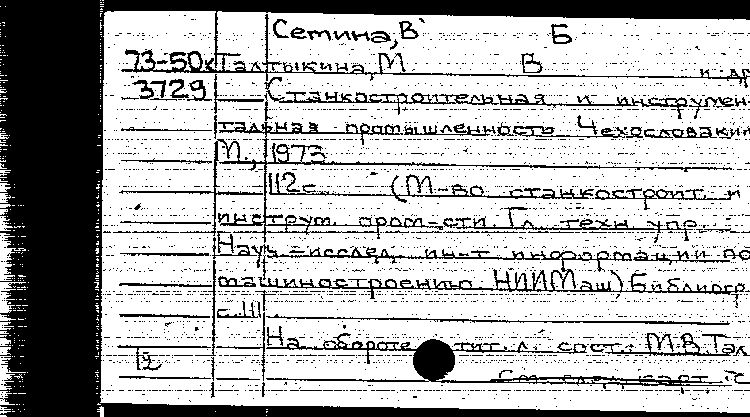 Семина, В Б
73-50к Талтыкина, М В и др
3729 Станкостроительная и инструмен-
тальная промышленность Чехословакии
М., 1973
112с (М-во станкостроит. и
инструм. пром-сти. Гл. техн. упр.
Науч.-исслед. ин-т информации по
машиностроению. НИИМаш) Библиогр.
с. 111.
На обороте тит. л. сост.: М.В. Тал
12 См. след. карт.